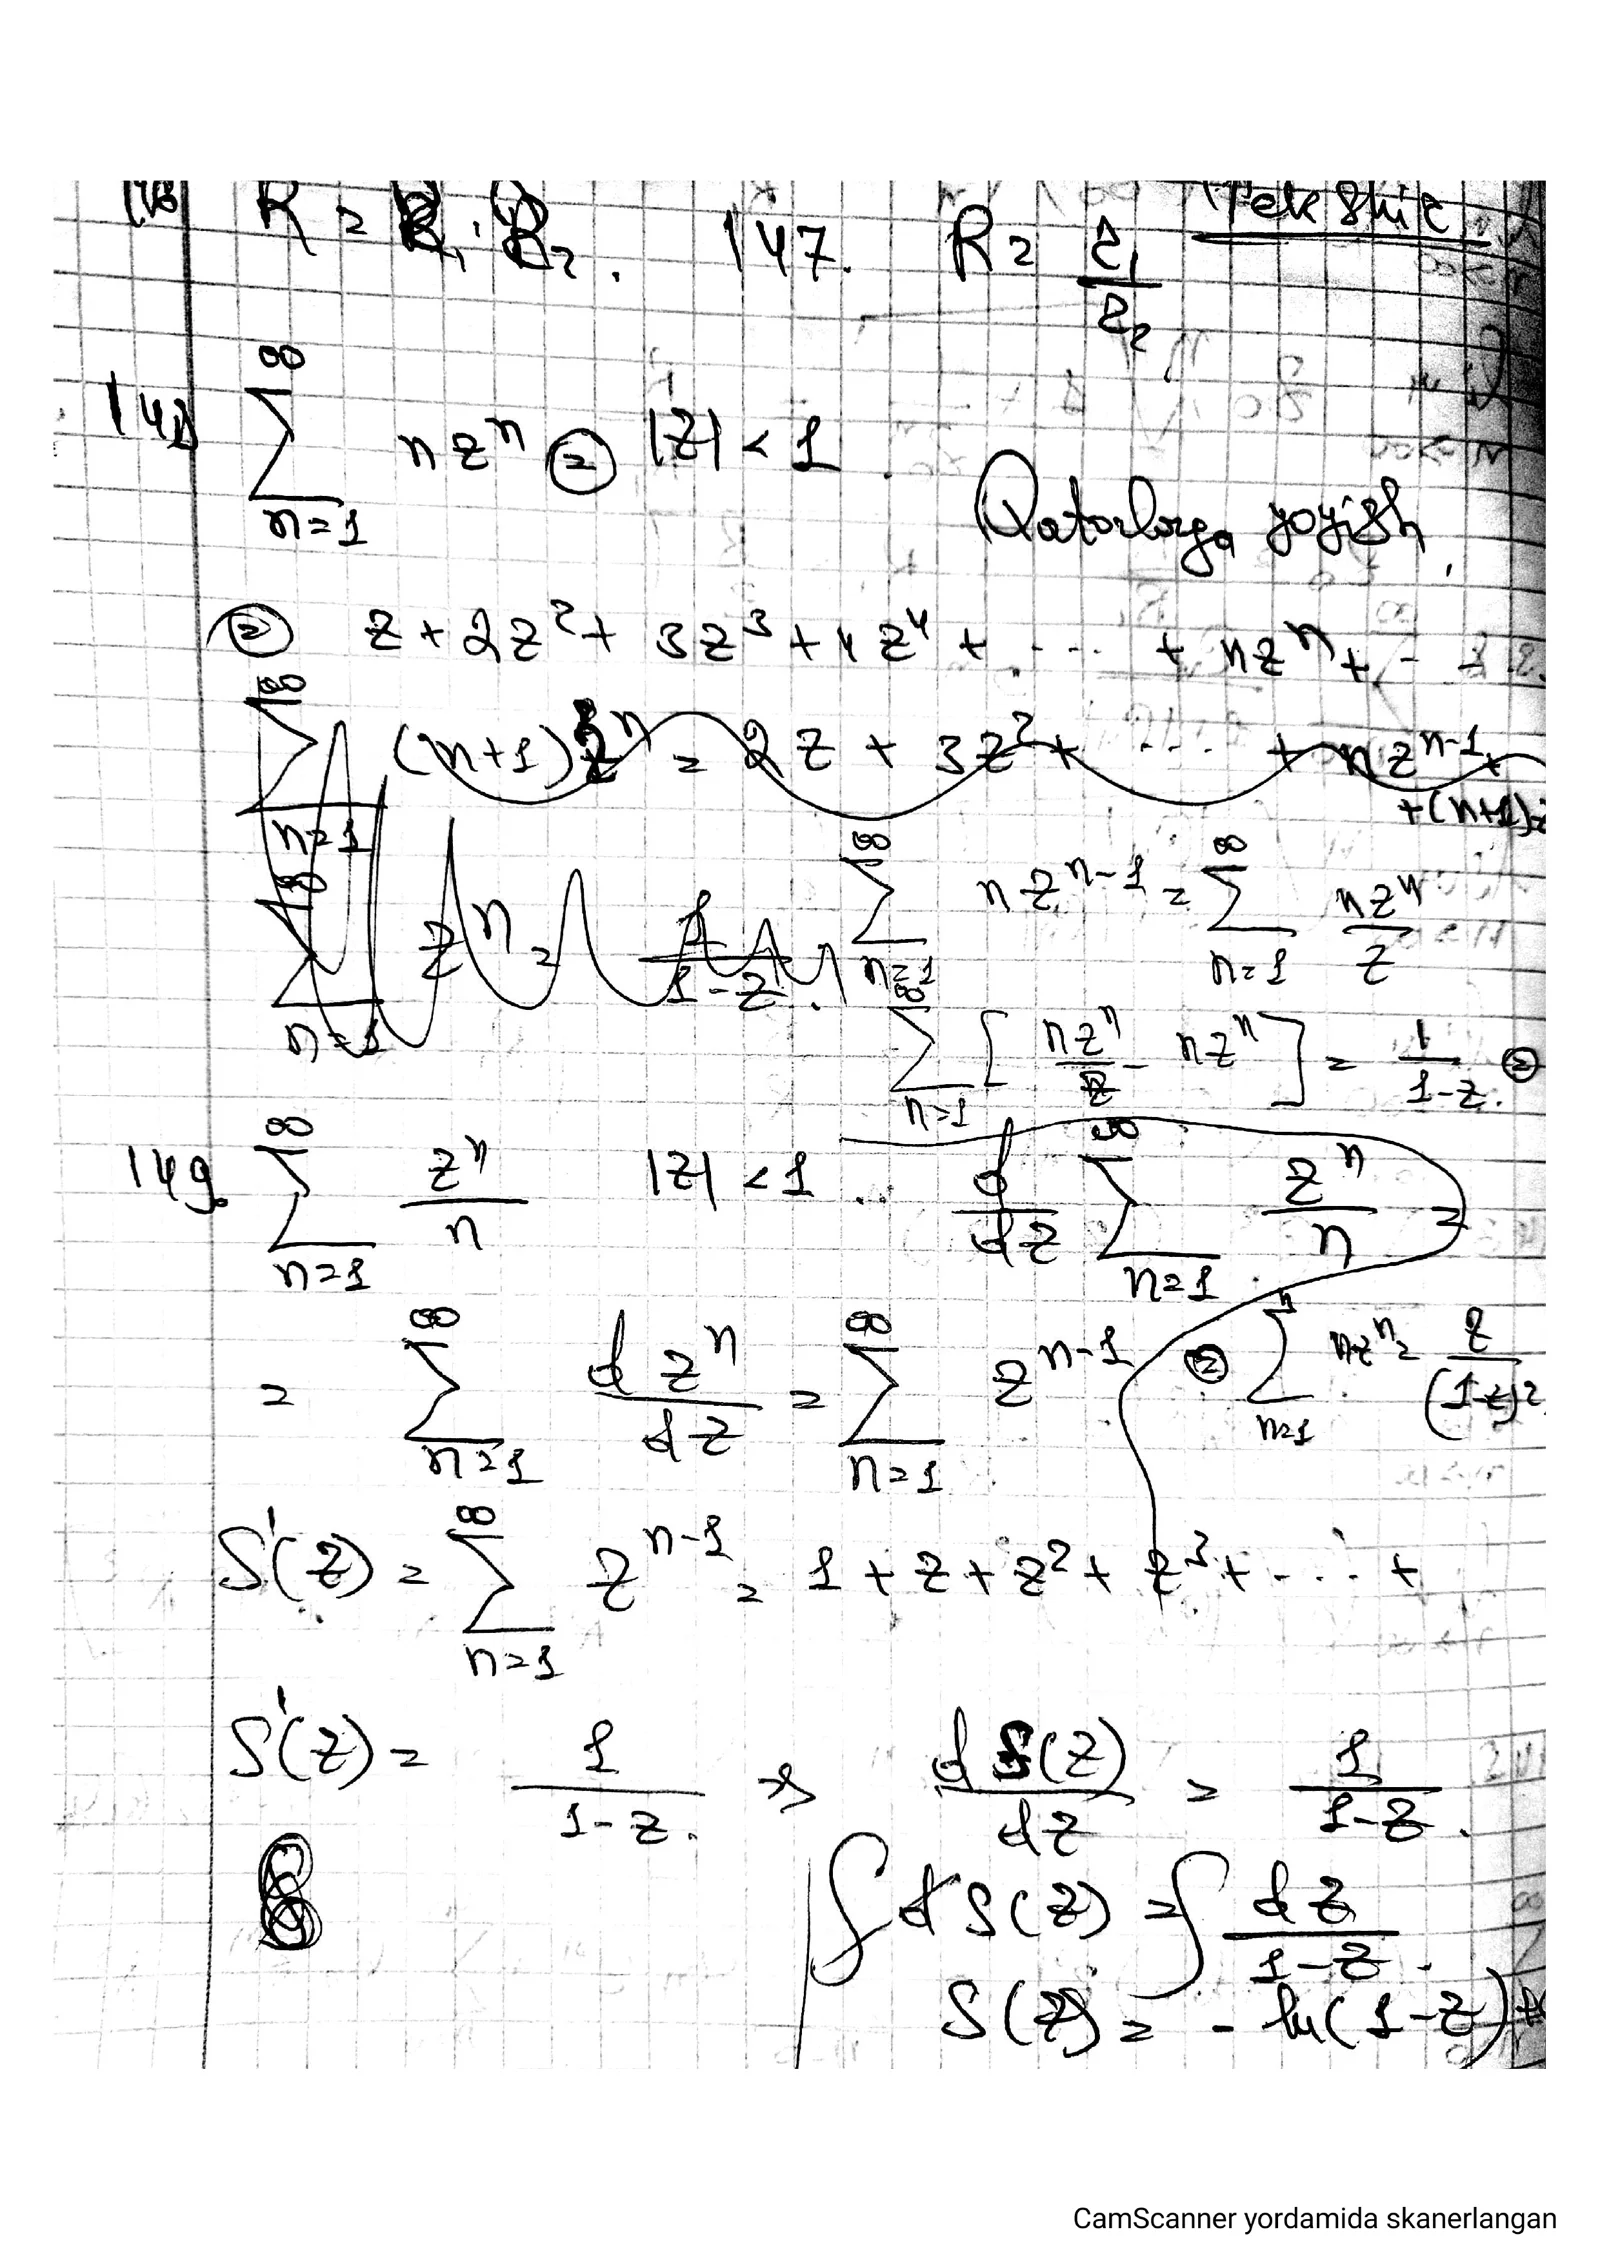 146 R = R₁ · R₂. 147. R = r₁/r₂ Tekshir
148 ∑_{n=1}^{∞} n zⁿ ⊜ |z| < 1.
Qatorlarga yoyish.
⊜ z + 2z² + 3z³ + 4z⁴ + ... + nzⁿ + ...
∑_{n=1}^{∞} (n+1)zⁿ = 2z + 3z² + ... + nzⁿ⁻¹ +
+(n+1)z
∑_{n=1}^{∞} zⁿ = 1/(1-z). ∑_{n=1}^{∞} nzⁿ⁻¹ = ∑_{n=1}^{∞} nzⁿ/z
∑_{n=1}^{∞} [nzⁿ/z - nzⁿ] = 1/(1-z). ⊜
149. ∑_{n=1}^{∞} zⁿ/n |z| < 1 .. d/dz ∑_{n=1}^{∞} zⁿ/n =
= ∑_{n=1}^{∞} d zⁿ/dz = ∑_{n=1}^{∞} zⁿ⁻¹ ⊜ ∑_{n=1}^{n} nzⁿ = z/(1-z)²
S'(z) = ∑_{n=1}^{∞} zⁿ⁻¹ = 1 + z + z² + z³ + ... +
S'(z) = 1/(1-z). ⇒ dS(z)/dz = 1/(1-z).
∫ dS(z) = ∫ dz/(1-z).
S(z) = - ln(1-z) +
CamScanner yordamida skanerlangan